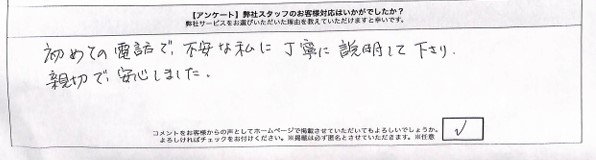 【アンケート】弊社スタッフのお客様対応はいかがでしたか？
弊社サービスをお選びいただいた理由を教えていただけますと幸いです。
初めての電話で、不安な私に丁寧に説明して下さり、
親切で、安心しました。
コメントをお客様からの声としてホームページで掲載させていただいてもよろしいでしょうか。
よろしければチェックをお付けください。※掲載は必ず匿名とさせていただきます。※任意
✓